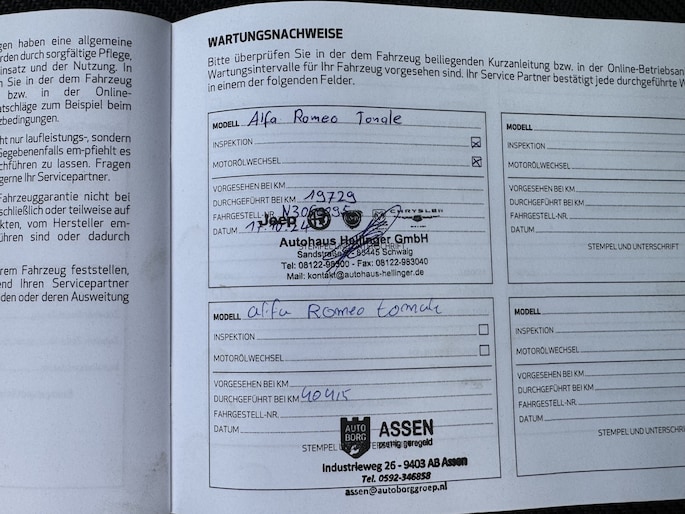 gen haben eine allgemeine
rden durch sorgfältige Pflege,
insatz und der Nutzung. In
n Sie in der dem Fahrzeug
bzw. in der Online-
atschläge zum Beispiel beim
zbedingungen.
ht nur laufleistungs-, sondern
Gegebenenfalls em-pfiehlt es
chführen zu lassen. Fragen
gerne Ihr Servicepartner.
Fahrzeuggarantie nicht bei
schließlich oder teilweise auf
kten, vom Hersteller em-
ühren sind oder dadurch
rem Fahrzeug feststellen,
end Ihren Servicepartner
den oder deren Ausweitung
WARTUNGSNACHWEISE
Bitte überprüfen Sie in der dem Fahrzeug beiliegenden Kurzanleitung bzw. in der Online-Betriebsan
Wartungsintervalle für Ihr Fahrzeug vorgesehen sind. Ihr Service Partner bestätigt jede durchgeführte W
in einem der folgenden Felder.
MODELL Alfa Romeo Tonale
INSPEKTION
MOTORÖLWECHSEL
VORGESEHEN BEI KM
DURCHGEFÜHRT BEI KM 19729
FAHRGESTELL-NR.
Jeep CHRYSLER
DATUM 17.10.24
Autohaus Hellinger GmbH
STEMPEL UND UNTERSCHRIFT
85445 Schwaig
Tel: 08122-99500 - Fax: 08122-983040
Mail: kontakt@autohaus-hellinger.de
MODELL alfa Romeo tonale
INSPEKTION
MOTORÖLWECHSEL
VORGESEHEN BEI KM
DURCHGEFÜHRT BEI KM 40415
FAHRGESTELL-NR.
DATUM
AUTO BORG ASSEN
prettig geregeld
STEMPEL UND UNTERSCHRIFT
Industrieweg 26 - 9403 AB Assen
Tel. 0592-346858
assen@autoborggroep.nl
MODELL
INSPEKTION
MOTORÖLWECHSEL
VORGESEHEN BEI KM
DURCHGEFÜHRT BEI KM
FAHRGESTELL-NR.
DATUM
STEMPEL UND UNTERSCHRIFT
MODELL
INSPEKTION
MOTORÖLWECHSEL
VORGESEHEN BEI KM
DURCHGEFÜHRT BEI KM
FAHRGESTELL-NR.
DATUM
STEMPEL UND UNTERSCHRI